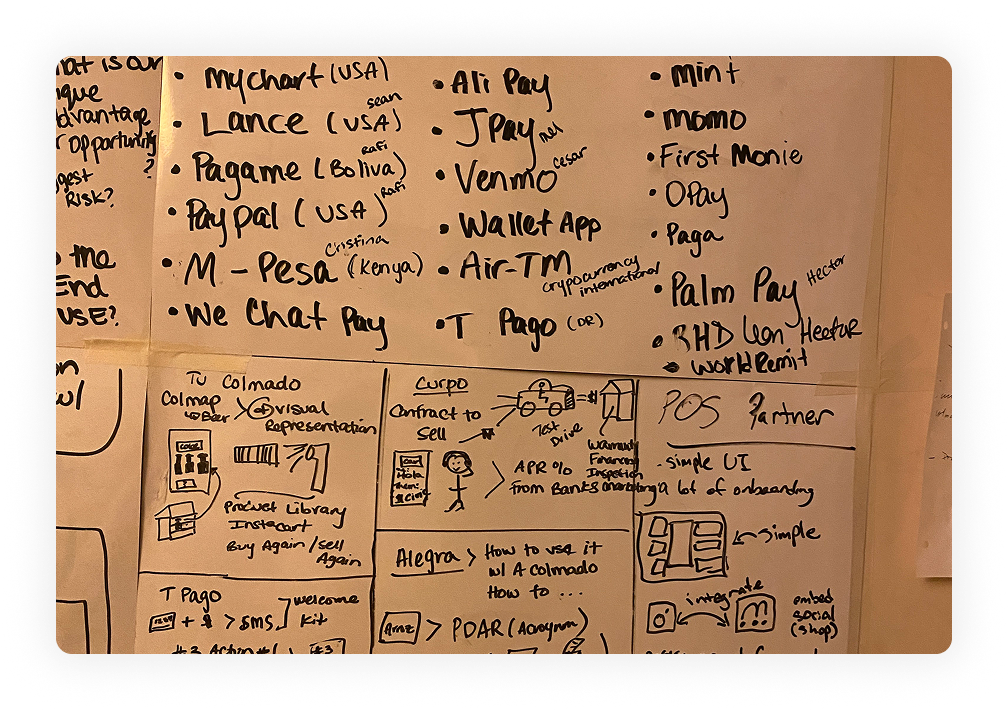 hat is our
ique
dvantage
r opportunity
?
ggest
Risk?
o the
End
USE?
• mychart (USA)
• Lance (USA) sean
• Pagame (Boliva) Rafi
• Paypal (USA) Rafi
• M-Pesa (Kenya) Cristina
• We Chat Pay
• Ali Pay
• JPay mel
• Venmo Cesar
• Wallet App
• Air-TM
crypocurrency
international
• T Pago (DR)
• Mint
• momo
• First Monie
• OPay
• Paga
• Palm Pay Hector
• BHD Leon Hector
• WorldRemit
on
w/
Tu Colmado
Colmap
Beer
visual
Representation
Product Library
Instacart
Buy Again/Sell
Again
Curpo
Contract to
Sell
Test
Drive
Warranty
Financing
Inspection
marketing
APR %
From Banks
POS Partner
- simple UI
- a lot of onboarding
simple
integrate
embed
social
(shop)
Alegra > How to use it
w/ A Colmado
How to ...
Amz > PDAR (Acronym)
T Pago
+ > SMS
welcome
kit
#3 Action #1
#3